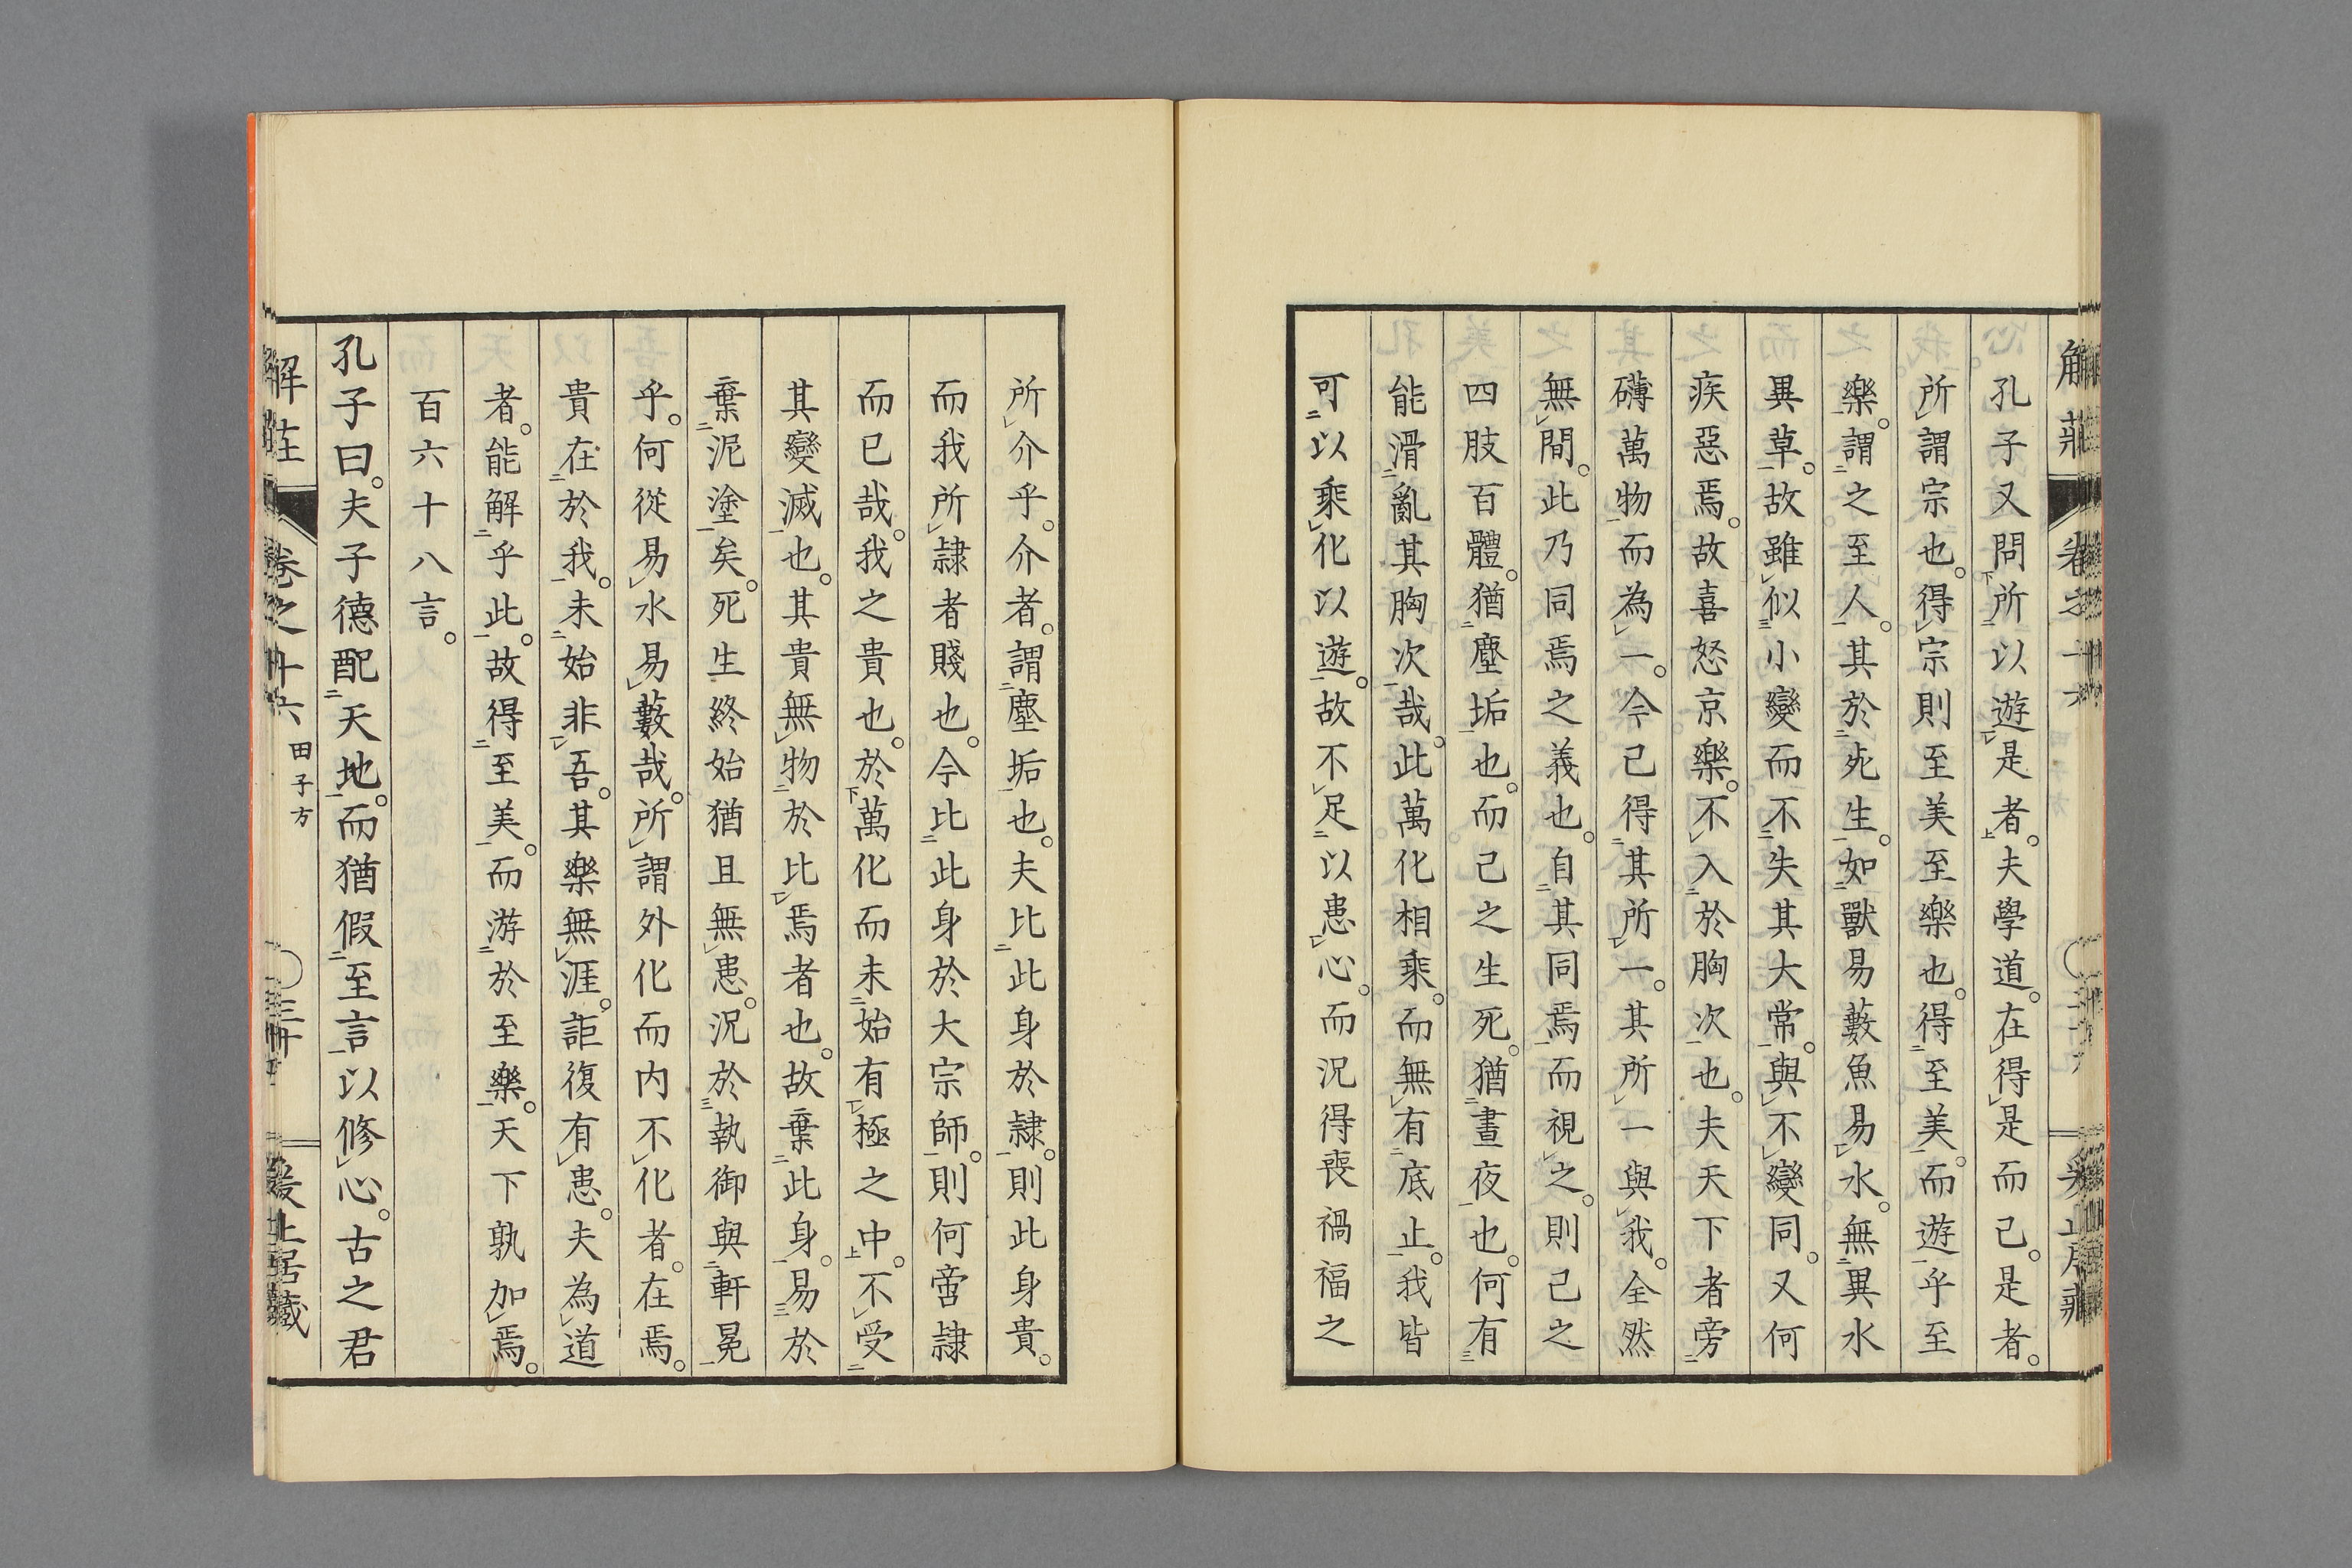 孔子又問所以遊是者。夫學道。在得是而已。是者。
所謂宗也。得宗則至美至樂也。得至美。而遊乎至
樂。謂之至人。其於死生。如獸易藪魚易水。無異水
異草。故雖似小變而不失其大常。與不變同。又何
疾惡焉。故喜怒哀樂。不入於胸次也。夫天下者旁
礴萬物而為一。今已得其所一。其所一與我。全然
無間。此乃同焉之義也。自其同焉而視之。則己之
四肢百體。猶塵垢也。而己之生死。猶晝夜也。何有
能滑亂其胸次哉。此萬化相乘。而無有底止。我皆
可以乘化以遊。故不足以患心。而況得喪禍福之
所介乎。介者。謂塵垢也。夫比此身於隷。則此身貴。
而我所隷者賤也。今比此身於大宗師。則何啻隷
而已哉。我之貴也。於萬化而未始有極之中。不受
其變滅也。其貴無物於比焉者也。故棄此身。易於
棄泥塗矣。死生終始猶且無患。況於執御與軒冕
乎。何從易水易藪哉。所謂外化而内不化者。在焉。
貴在於我。未始非吾。其樂無涯。詎復有患。夫為道
者。能解乎此。故得至美。而游於至樂。天下孰加焉。
百六十八言。
孔子曰。夫子德配天地。而猶假至言以修心。古之君
解莊 卷之十六 田子方